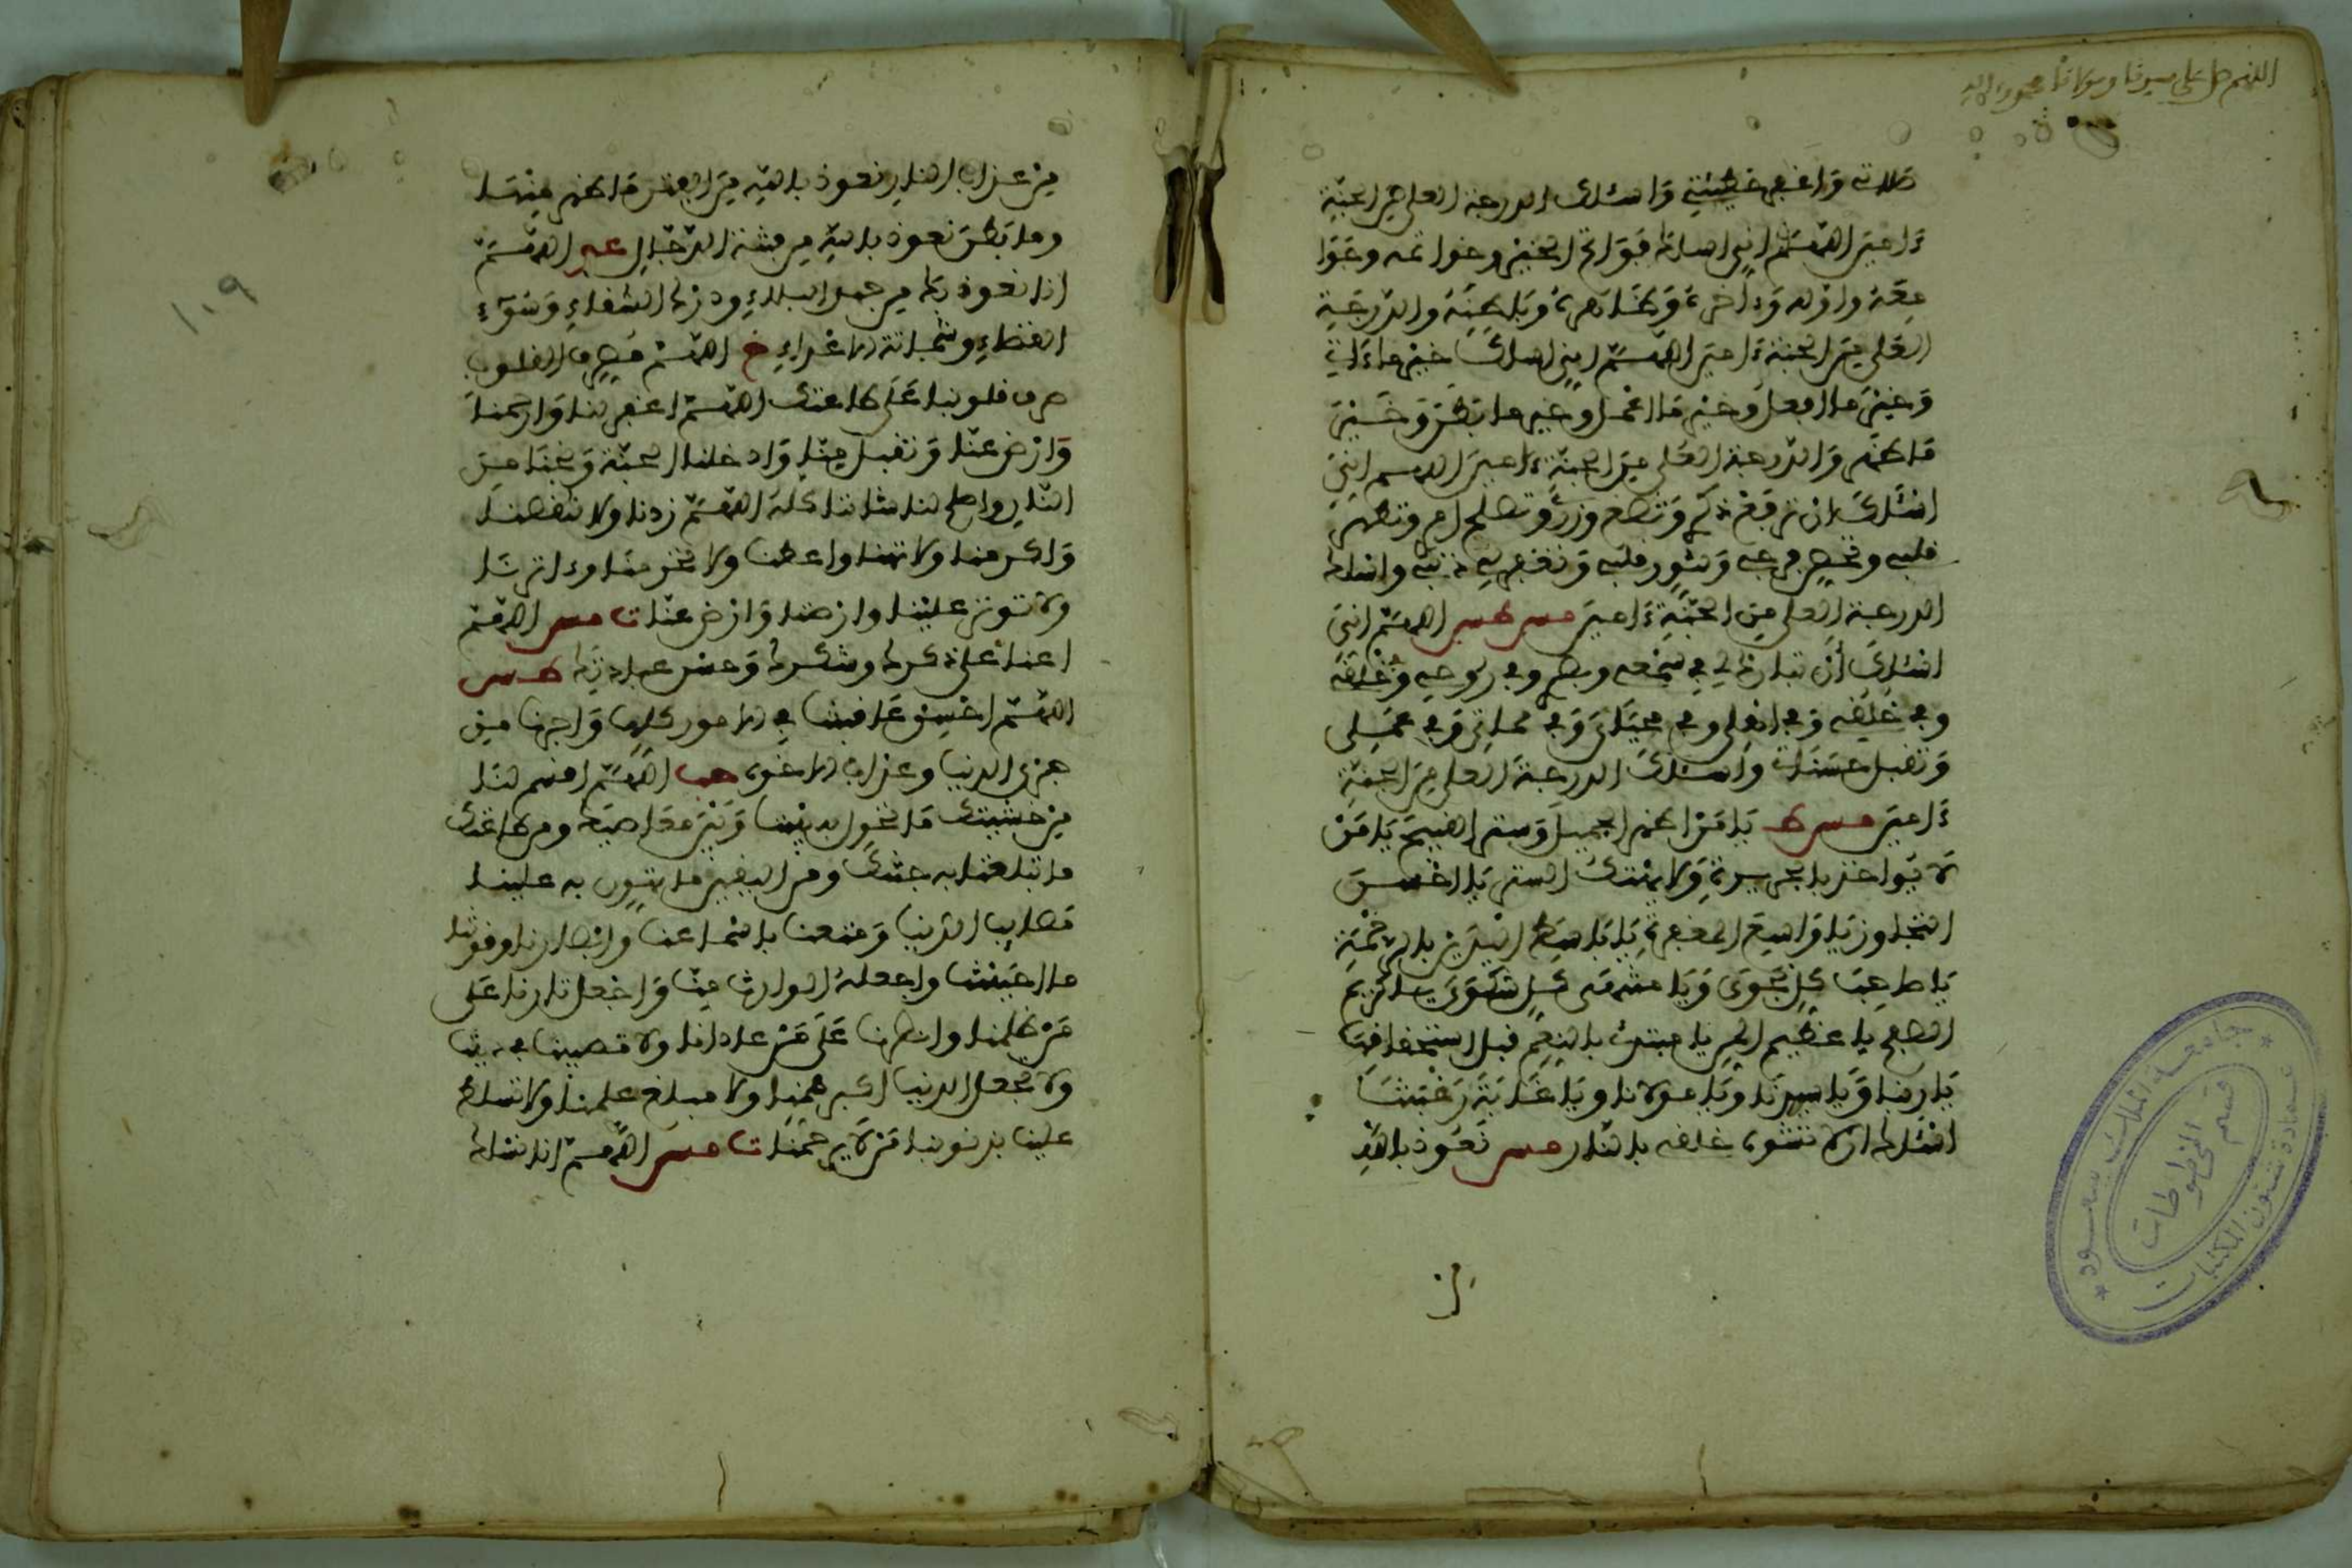 اللهم صل على سيدنا ومولانا محمد واله
صلاتي وَاغفر خطيئتي وَاسئلك الدرجة العلى مِنَ الجنّةِ
ءَامينَ اللهُمَّ انّي اسئلك فَوَاتح الخَيْر وخواتمه وجَوَا
مِعَهُ واوّله وَءَاخره وَظَاهره وَبَاطِنَه والدّرجَةِ
العُلى مِنَ الجنة ءَامينَ اللهُمَّ اِنّي اسئلك خيْر ما ءَاتي
وَخيْرَ ما افعل وَخير مَا اعْمل وخير ما بَطَنَ وَخَيْرَ
مَا ظَهَر وَالدّرجة العُلى مِنَ الجنّة ءَامينَ اللهم انّي
اسْئَلكَ ان ترفَعَ ذكري وَتضع وزري وَتصلح امري وتطهر
قلبي وتحصن فرجي وَتنوِّر قلبي وَتغفر لي ذنبي واسئلك
الدرجة العلى مِنَ الجَنَّةِ ءَامينَ مس طس اللهمّ انّي
اسْئلكَ أنْ تبارك لي في سَمْعي وبصري وفي روحي وَخَلْقي
وفي خُلُقي وَفي اهلي وفي محيَايَ وَفي مماتي وَفي عَمَلي
وَتقبل حَسَنَاتي وَاسئلكَ الدرجة العلى مِنَ الجنّةِ
ءَامينَ مس ط يَا مَنْ اظهر الجميلَ وَستر القبيحَ يَا مَنْ
لا يُواخذ بالجريرةِ وَلا يهْتك الستر يَا حَسَنَ
التجاوز يَا وَاسِعَ المغفرةِ يَا بَاسِطَ اليَدَيْنِ بالرحْمَةِ
يَا صاحِبَ كلّ نجوَى وَيَا منتهى كل شكوَى يا كريم
الصفح يا عظيم المنّ يا مبتدئ بالنِعَم قبل استحقاقها
يَا ربنا وَيَا سيدنَا وَيَا مولانا ويَا غَايَةَ رَغْبَتنا
اسْئلك ان لا تشوي خلقي بالنّار مس نَعُوذ بالله
مِنْ عذاب النارِ نعوذ باللهِ مِنَ الفتن مَا ظهر مِنْهَا
وما بَطَنَ نعوذ باللهِ من فتنة الدّجّالِ عو اللهُمَّ
انا نعوذ بك من جهد البلاءِ ودرك الشقاءِ وَسُوءِ
القضاءِ وشماتة الاعْداءِ خ اللهُمَّ مُصرّف القلوب
صرف قلوبنا عَلى طاعتك اللهُمَّ اغفر لنا وَارحمنا
وَارْض عنّا وَتقبل منّا وَادخلنا الجنّة وَنجّنا مِنَ
النّارِ واصلح لنا شاننا كلّه اللهُمَّ زدنا ولا تنقصنا
وَاكرمنا ولا تهنا واعطنا ولا تحرمنا وءاثرنا
ولا توثر علينَا وارضنا وَارْض عنّا ت مس اللهُمَّ
اعنا على ذكرك وشكرك وَحسن عبادتك
اللهُمَّ احْسِنْ عَاقبتنا في الامور كلها وَاجرنا من
خزي الدنيا وعذاب الاخرة حب اللهُمَّ اقسم لنَا
مِنْ خشيتك مَا تحُول بيننا وَبَيْنَ مَعَاصيكَ ومن طاعتك
ما تبلغنا به جنّتكَ ومن اليقين ما تهون به علينا
مَصايب الدّنيا وَمتعنا باسْماعنا وابْصارنا وقوتنا
ما احْيَيْتنا واجعله الوارث منّا وَاجْعل ثارنا عَلى
مَنْ ظلمنا وانصرنا عَلى مَنْ عادانا ولا تجعل مصيبتنا في ديننا
ولا تجعل الدنيا اكبر همّنا ولا مبلغ علمنا ولا تسلط
علينا بذنوبنا مَنْ لا يرحمنا ت مس اللهُمَّ انا نسْئلك
١٠٩
جامعة الملك سعود
عمادة شئون المكتبات
قسم المخطوطات